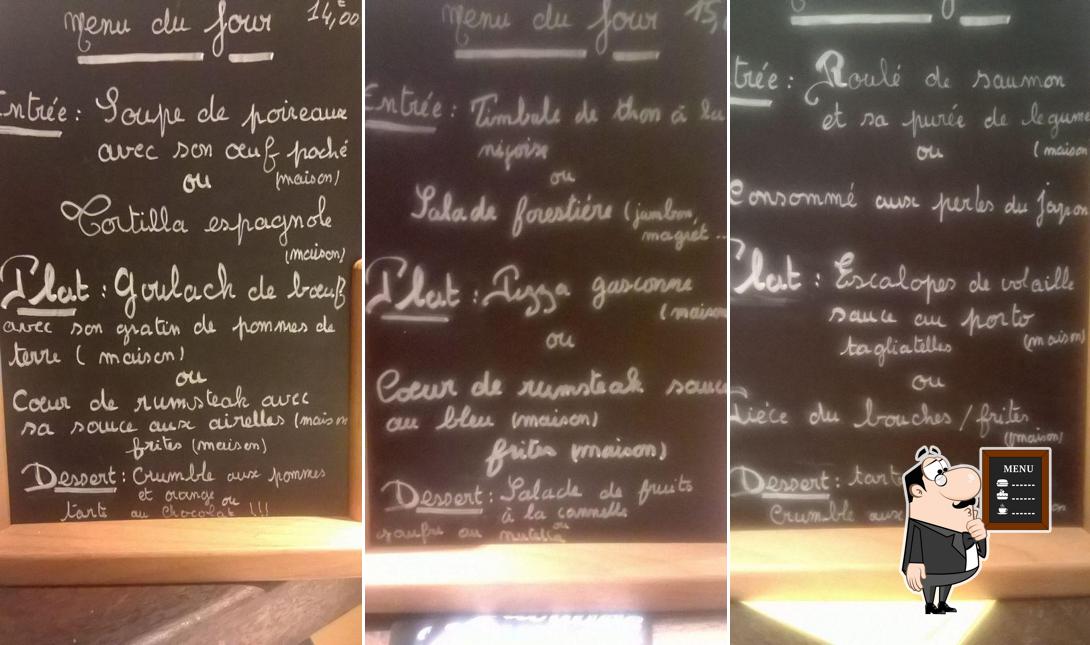 menu du jour 14,00€
Entrée : Soupe de poireaux
avec son œuf poché
ou (maison)
Tortilla espagnole
(maison)
Plat : Goulach de bœuf
avec son gratin de pommes de
terre ( maison)
ou
Cœur de rumsteak avec
sa sauce aux airelles (maison
frites (maison)
Dessert : Crumble aux pommes
et orange ou
tarte au chocolat !!!
menu du jour 15,
Entrée : Timbale de thon à la
niçoise
ou
Salade forestière (jambon,
magret ...
Plat : Pizza gasconne
(maison
ou
Cœur de rumsteak sauce
au bleu (maison)
frites (maison)
Dessert : Salade de fruits
à la cannelle
ou
au nutella
trée : Roulé de saumon
et sa purée de legume
ou (maison
Consommé aux perles du japon
Plat : Escalopes de volaille
sauce au porto
tagliatelles (maison)
ou
Pièce du bouches / frites
(maison)
Dessert : tart
Crumble aux
MENU